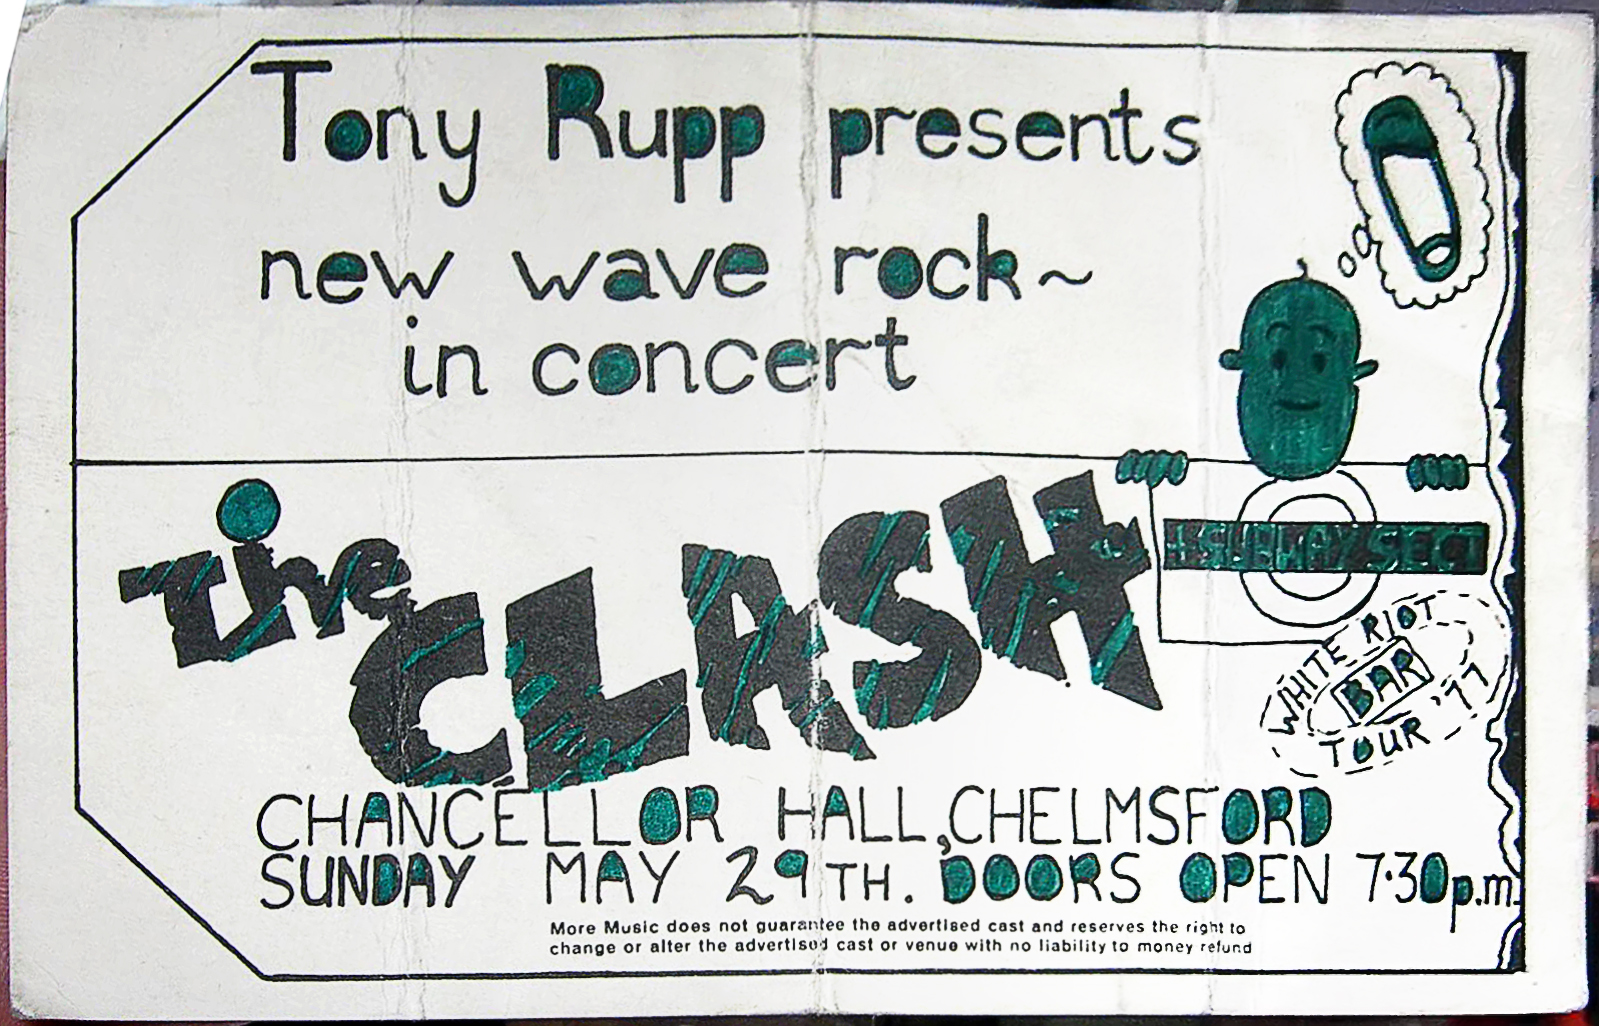 Tony Rupp presents
new wave rock~
in concert
the CLASH
+SUBWAY SECT
WHITE RIOT
BAR
TOUR '77
CHANCELLOR HALL, CHELMSFORD
SUNDAY MAY 29TH. DOORS OPEN 7·30p.m.
More Music does not guarantee the advertised cast and reserves the right to
change or alter the advertised cast or venue with no liability to money refund